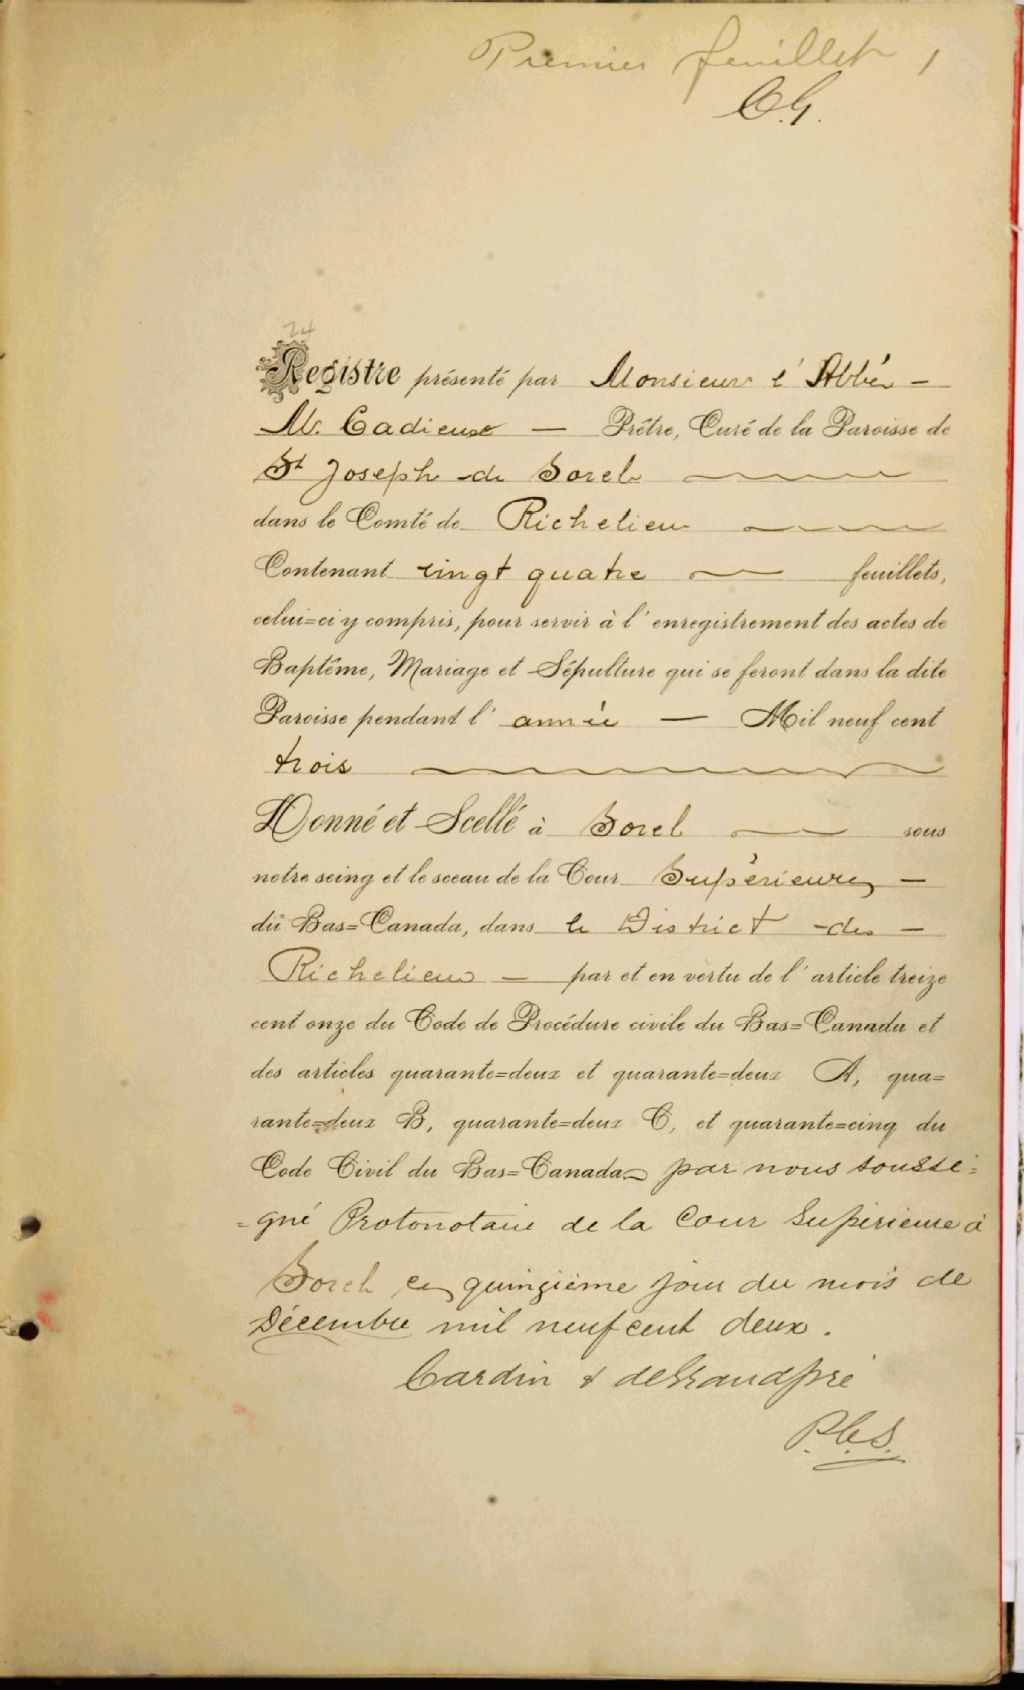 Premier feuillet 1
C.G.
24
Registre présenté par Monsieur l'Abbé —
M. Cadieux — Prêtre, Curé de la Paroisse de
St Joseph de Sorel
dans le Comté de Richelieu
Contenant vingt quatre — feuillets,
celui=ci y compris, pour servir à l'enregistrement des actes de
Baptême, Mariage et Sépulture qui se feront dans la dite
Paroisse pendant l'année — Mil neuf cent
trois
Donné et Scellé à Sorel — sous
notre seing et le sceau de la Cour Supérieure —
du Bas=Canada, dans le District de —
Richelieu — par et en vertu de l'article treize
cent onze du Code de Procédure civile du Bas=Canada et
des articles quarante=deux et quarante=deux A, qua=
rante=deux B, quarante=deux C, et quarante=cinq du
Code Civil du Bas=Canada par nous soussi=
=gné Protonotaire de la Cour Supérieure à
Sorel ce quinzième jour du mois de
Décembre mil neuf cent deux.
Cardin & deGrandpré
P.C.S.